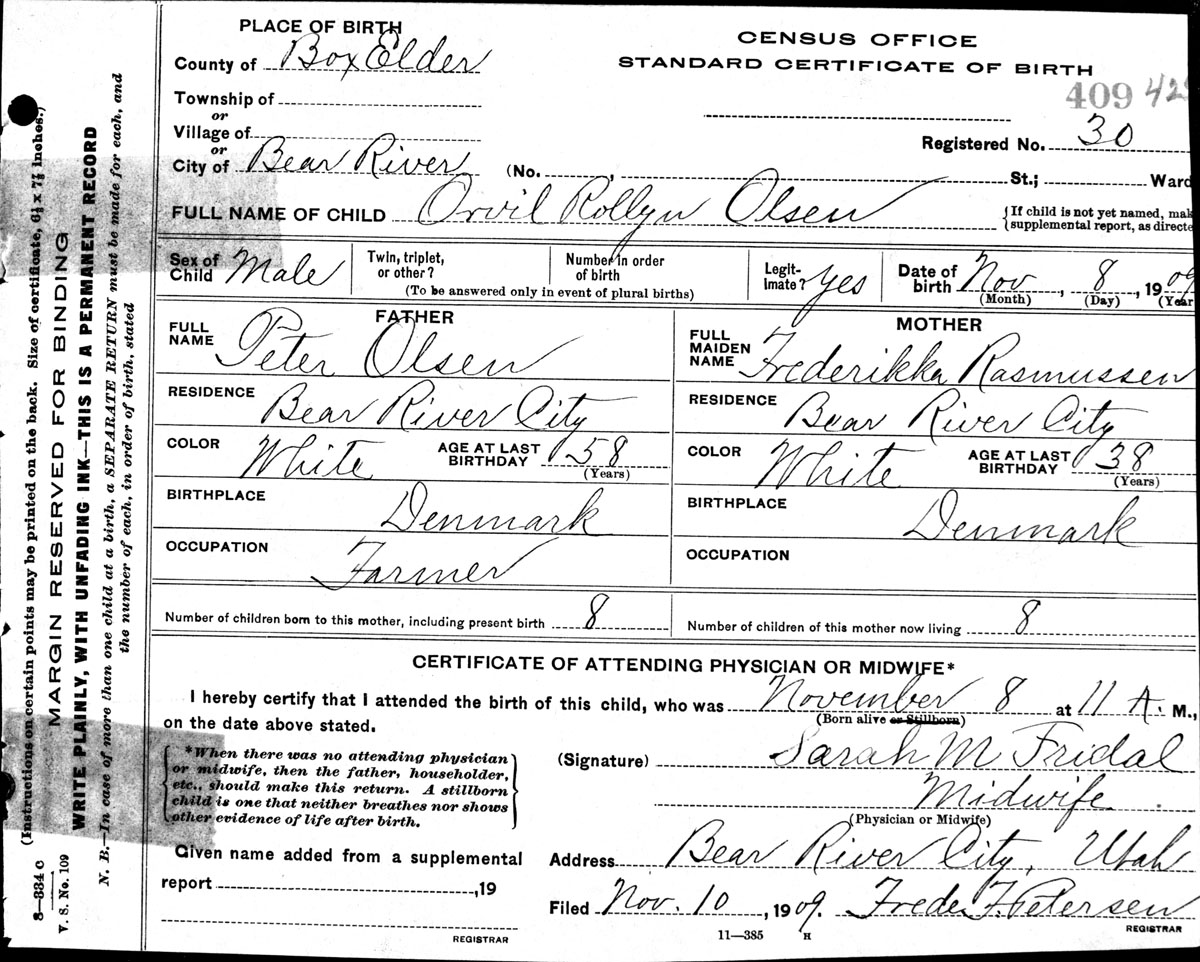 PLACE OF BIRTH
County of Box Elder
Township of
or
Village of
or
City of Bear River (No. , St.; Ward
CENSUS OFFICE
STANDARD CERTIFICATE OF BIRTH
409 42
Registered No. 30
FULL NAME OF CHILD Orvil Rollyn Olsen {If child is not yet named, mak
supplemental report, as directe
Sex of Child Male Twin, triplet, or other? Number in order of birth Legit-imate? yes Date of birth Nov , 8 , 1909
(To be answered only in event of plural births) (Month) (Day) (Year
FATHER
FULL NAME Peter Olsen
RESIDENCE Bear River City
COLOR White AGE AT LAST BIRTHDAY 58
(Years)
BIRTHPLACE Denmark
OCCUPATION Farmer
MOTHER
FULL MAIDEN NAME Frederikka Rasmussen
RESIDENCE Bear River City
COLOR White AGE AT LAST BIRTHDAY 38
(Years)
BIRTHPLACE Denmark
OCCUPATION
Number of children born to this mother, including present birth 8
Number of children of this mother now living 8
CERTIFICATE OF ATTENDING PHYSICIAN OR MIDWIFE*
I hereby certify that I attended the birth of this child, who was November 8 at 11 A. M.,
(Born alive or Stillborn)
on the date above stated.
{*When there was no attending physician
or midwife, then the father, householder,
etc., should make this return. A stillborn
child is one that neither breathes nor shows
other evidence of life after birth.}
(Signature) Sarah M Fridal
Midwife
(Physician or Midwife)
Given name added from a supplemental
report ,19
REGISTRAR
Address Bear River City, Utah
Filed Nov. 10 , 1909. Frede F. Petersen
11—385 H REGISTRAR
(Instructions on certain points may be printed on the back. Size of certificate, 6½ x 7½ inches.)
MARGIN RESERVED FOR BINDING
WRITE PLAINLY, WITH UNFADING INK—THIS IS A PERMANENT RECORD
N. B.—In case of more than one child at a birth, a SEPARATE RETURN must be made for each, and
the number of each, in order of birth, stated
8—334 c
V. S. No. 109